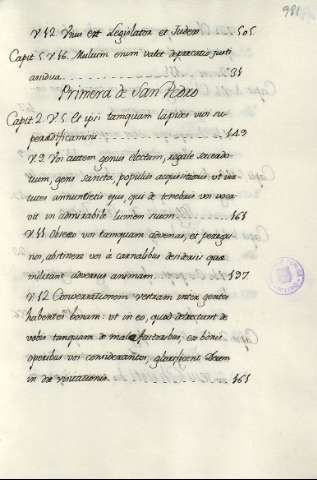 981
V 12. Unus est Legislator et Judex 505
Capit. 5. V 16. Multum enim valet deprecatio justi
asidua. . . . . . . . . . . . . . . . . . . . . . 31
Primera de San Pedro
Capit 2. V 5. Et ipsi tamquam lapides vivi su
peraedificamini . . . . . . . . . . . . . . . . . 149
V. 9. Vos autem genus electum, regale sacerdo
tium, gens sancta, populus acquisitionis ut vir
tutes annuntietis ejus, qui de tenebris vos voca
vit in admirabile lumen suum. . . . . . . . 161
V 11. Obsecro vos tamquam advenas, et peregri
nos, abstinere vos à carnalibus desideriis quae
militant adversus animam . . . . . . . 197
V. 12. Conversationem vestram inter gentes
habentes bonam: ut in eo, quod detrectant de
vobis tanquam de malefactoribus, ex bonis
operibus vos considerantes, glorificent Deum
in die visitationis. . . . . . . . . . . . 161